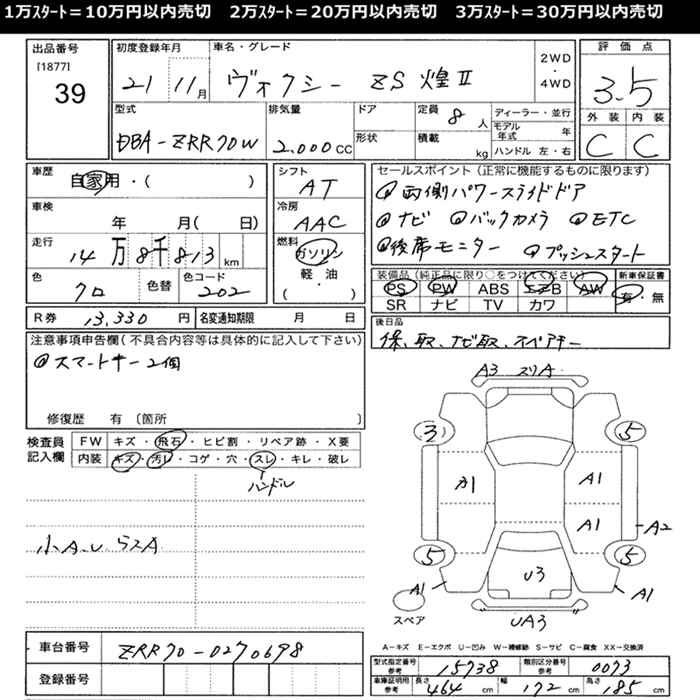 1万ｽﾀｰﾄ＝10万円以内売切　2万ｽﾀｰﾄ＝20万円以内売切　3万ｽﾀｰﾄ＝30万円以内売切
出品番号
[1877]
39
初度登録年月
21 11月
車名・グレード
ヴォクシー ZS 煌Ⅱ
2WD
・
4WD
評価点
3.5
外装 内装
C C
型式
DBA-ZRR70W
排気量
2.000CC
ドア
形状
定員 8 人
積載 kg
ディーラー・並行
モデル年式 年
ハンドル 左・右
車歴
自家用・( )
車検
年 月( 日)
走行
14万8千813km
色
クロ
色替
色コード
202
シフト
AT
冷房
AAC
燃料
ガソリン
軽・油
( ・ )
セールスポイント(正常に機能するものに限ります)
@両側パワースライドドア
@ナビ @バックカメラ @ETC
@後席モニター @プッシュスタート
装備品(純正品に限り○をつけてください)
PS PW ABS エアB AW
SR ナビ TV カワ
新車保証書
有・無
R券 13,330円
名変通知期限 月 日
後日品
保、取、ナビ取、スペアキー
注意事項申告欄(不具合内容等は具体的に記入して下さい)
@スマートキー2個
修復歴 有 〔箇所 〕
検査員記入欄
FW キズ・飛石・ヒビ割・リペア跡・X要
内装 キズ・汚レ・コゲ・穴・スレ・キレ・破レ
ハンドル
小A.U.
A3 スリA
3 5
カ1 A1
A1 A2
5 5
A1 U3 A1
スペア
UA3
A－キズ E－エクボ U－凹み W－補修跡 S－サビ C－腐食 XX－交換済
車台番号 ZRR70-0270698
登録番号
型式指定番号 参考 15738
類別区分番号 参考 0073
車庫証明用 参考 長さ 464 cm 幅 172 cm 高さ 185 cm